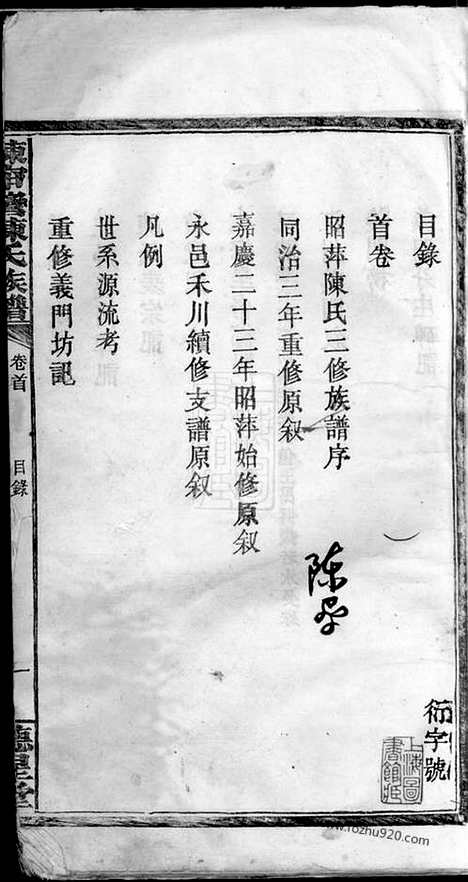 目錄
首卷
昭萍陳氏三修族譜序
同治三年重修原叙
嘉慶二十三年昭萍始修原叙
永邑禾川續修支譜原叙
凡例
世系源流考
重修義門坊記
陳氏族譜
卷首
目錄
一
德星堂
衍字號
上海圖書館藏
www.rozhu920.com